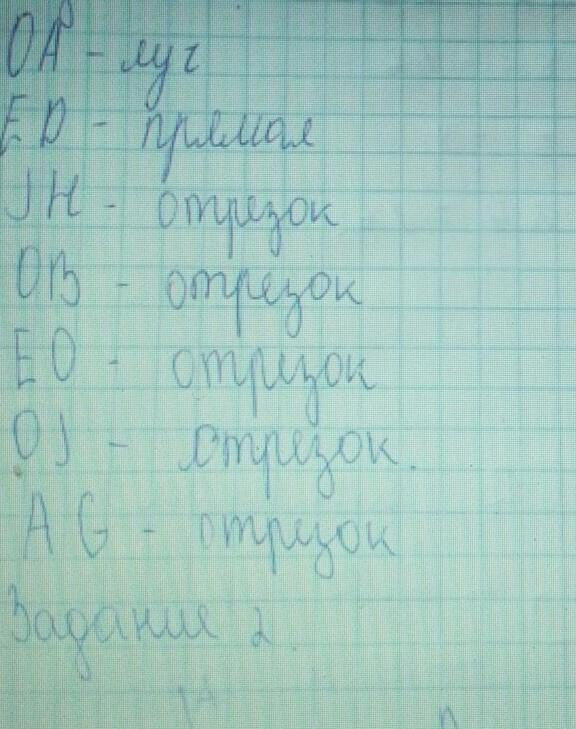 OA - луч
ED - прямая
JH - отрезок
OB - отрезок
EO - отрезок
OJ - отрезок.
AG - отрезок
Задание 2.